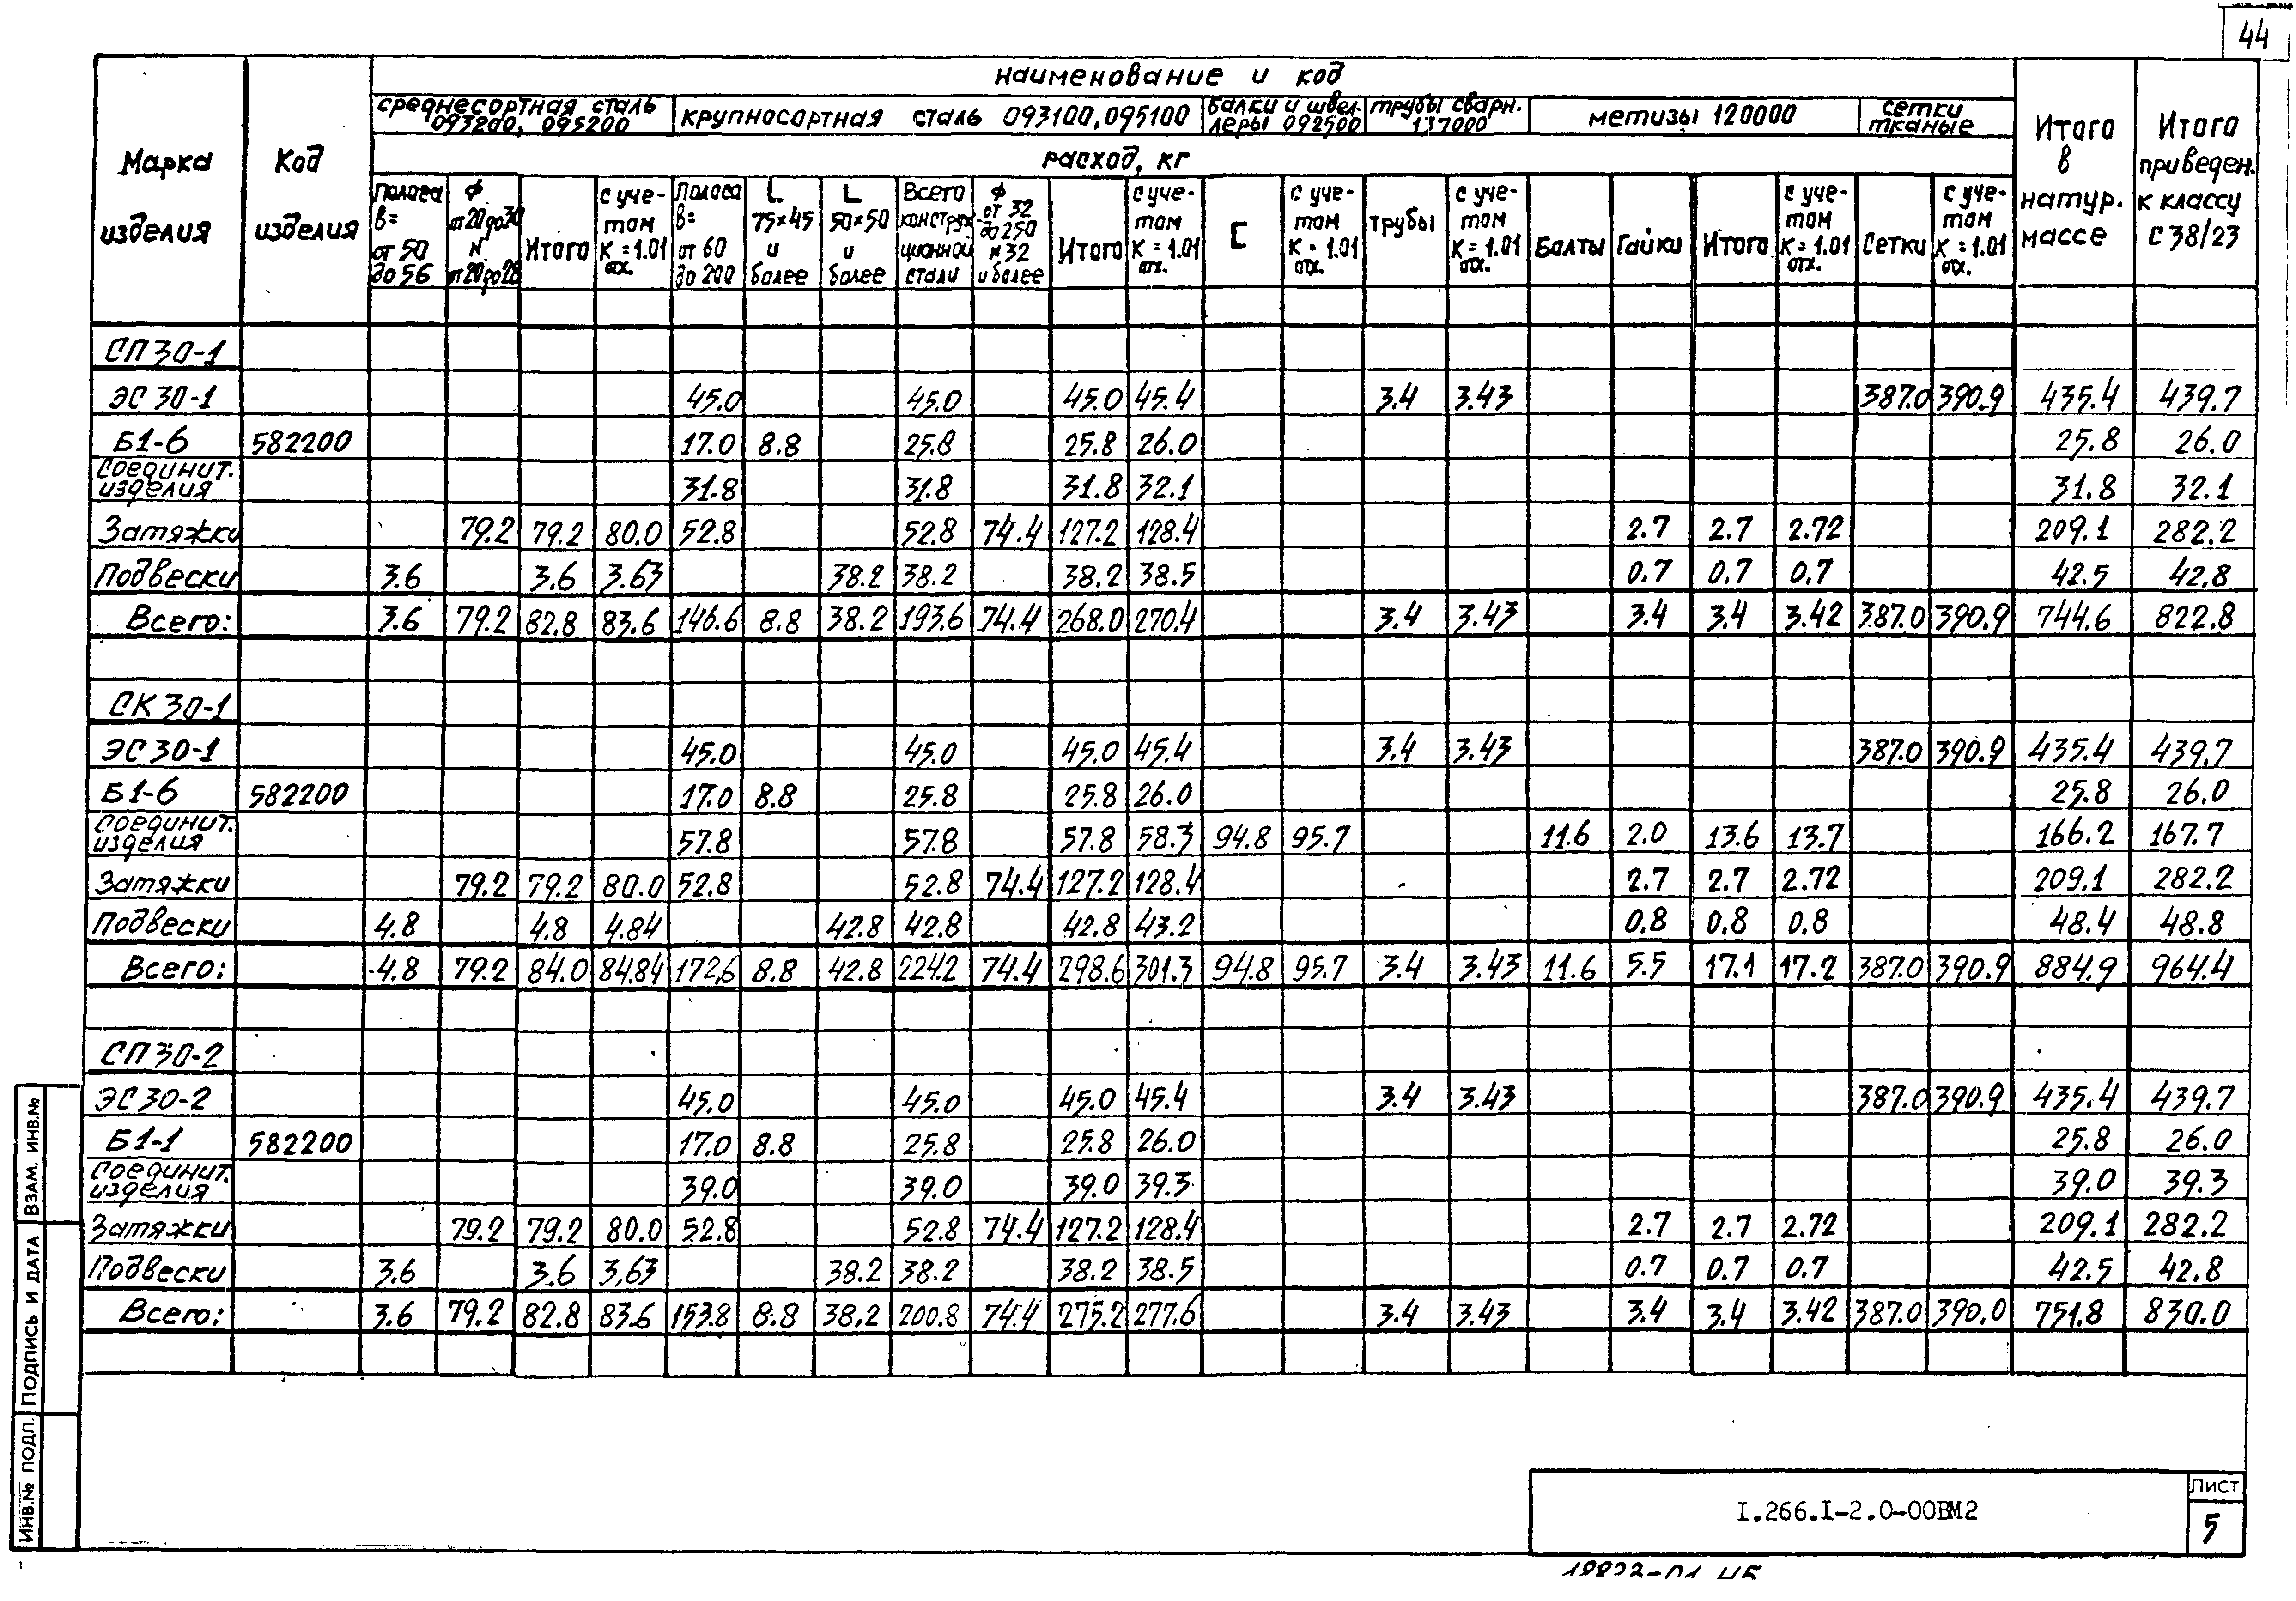 44
наименование и код
среднесортная сталь 093200, 095200
крупносортная сталь 093100, 095100
балки и швеллеры 092500
трубы сварн. 137000
метизы 120000
сетки тканые
Марка изделия
Код изделия
расход, кг
Итого в натур. массе
Итого приведен. к классу С 38/23
Полоса в= от 50 до 56
ф от 20 до 30 N от 20 до 28
Итого
с учетом К=1.01 отх.
Полоса в= от 60 до 200
L 75×45 и более
L 50×50 и более
Всего конструкционной стали
ф от 32 до 250 N 32 и более
Итого
с учетом К=1.01 отх.
[
с учетом К=1.01 отх.
трубы
с учетом К=1.01 отх.
Болты
Гайки
Итого
с учетом К=1.01 отх.
Сетки
с учетом К=1.01 отх.
СП 30-1
ЭС 30-1 45.0 45.0 45.0 45.4 3.4 3.43 387.0 390.9 435.4 439.7
Б1-6 582200 17.0 8.8 25.8 25.8 26.0 25.8 26.0
Соединит. изделия 31.8 31.8 31.8 32.1 31.8 32.1
Затяжки 79.2 79.2 80.0 52.8 52.8 74.4 127.2 128.4 2.7 2.7 2.72 209.1 282.2
Подвески 3.6 3.6 3.63 38.2 38.2 38.2 38.5 0.7 0.7 0.7 42.5 42.8
Всего: 3.6 79.2 82.8 83.6 146.6 8.8 38.2 193.6 74.4 268.0 270.4 3.4 3.43 3.4 3.4 3.42 387.0 390.9 744.6 822.8
СК 30-1
ЭС 30-1 45.0 45.0 45.0 45.4 3.4 3.43 387.0 390.9 435.4 439.7
Б1-6 582200 17.0 8.8 25.8 25.8 26.0 25.8 26.0
Соединит. изделия 57.8 57.8 57.8 58.3 94.8 95.7 11.6 2.0 13.6 13.7 166.2 167.7
Затяжки 79.2 79.2 80.0 52.8 52.8 74.4 127.2 128.4 2.7 2.7 2.72 209.1 282.2
Подвески 4.8 4.8 4.84 42.8 42.8 42.8 43.2 0.8 0.8 0.8 48.4 48.8
Всего: 4.8 79.2 84.0 84.84 172,6 8.8 42.8 224.2 74.4 298.6 301.3 94.8 95.7 3.4 3.43 11.6 5.5 17.1 17.2 387.0 390.9 884.9 964.4
СП 30-2
ЭС 30-2 45.0 45.0 45.0 45.4 3.4 3.43 387.0 390.9 435.4 439.7
Б1-1 582200 17.0 8.8 25.8 25.8 26.0 25.8 26.0
Соединит. изделия 39.0 39.0 39.0 39.3 39.0 39.3
Затяжки 79.2 79.2 80.0 52.8 52.8 74.4 127.2 128.4 2.7 2.7 2.72 209.1 282.2
Подвески 3.6 3.6 3,63 38.2 38.2 38.2 38.5 0.7 0.7 0.7 42.5 42.8
Всего: 3.6 79.2 82.8 83.6 153.8 8.8 38.2 200.8 74.4 275.2 277.6 3.4 3.43 3.4 3.4 3.42 387.0 390.0 751.8 830.0
ИНВ.№ ПОДЛ. ПОДПИСЬ И ДАТА ВЗАМ. ИНВ.№
I.266.I-2.0-00ВМ2
Лист
5